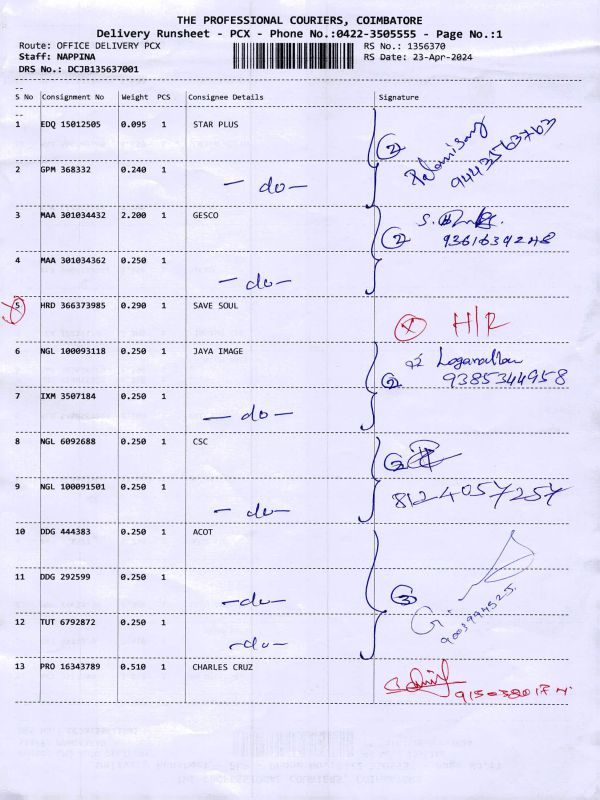 THE PROFESSIONAL COURIERS, COIMBATORE
Delivery Runsheet - PCX - Phone No.:0422-3505555 - Page No.:1
Route: OFFICE DELIVERY PCX RS No.: 1356370
Staff: NAPPINA RS Date: 23-Apr-2024
DRS No.: DCJB135637001
S No Consignment No Weight PCS Consignee Details Signature
1 EDQ 15012505 0.095 1 STAR PLUS
② 9443563763
2 GPM 368332 0.240 1 — do —
3 MAA 301034432 2.200 1 GESCO
② 9361639248
4 MAA 301034362 0.250 1 — do —
5 HRD 366373985 0.290 1 SAVE SOUL
Ⓧ H/R
6 NGL 100093118 0.250 1 JAYA IMAGE
② 9385344958
7 IXM 3507184 0.250 1 — do —
8 NGL 6092688 0.250 1 CSC
②
9 NGL 100091501 0.250 1 — do —
8124057257
10 DDG 444383 0.250 1 ACOT
11 DDG 292599 0.250 1 — do —
③
12 TUT 6792872 0.250 1 — do —
9003994525
13 PRO 16343789 0.510 1 CHARLES CRUZ